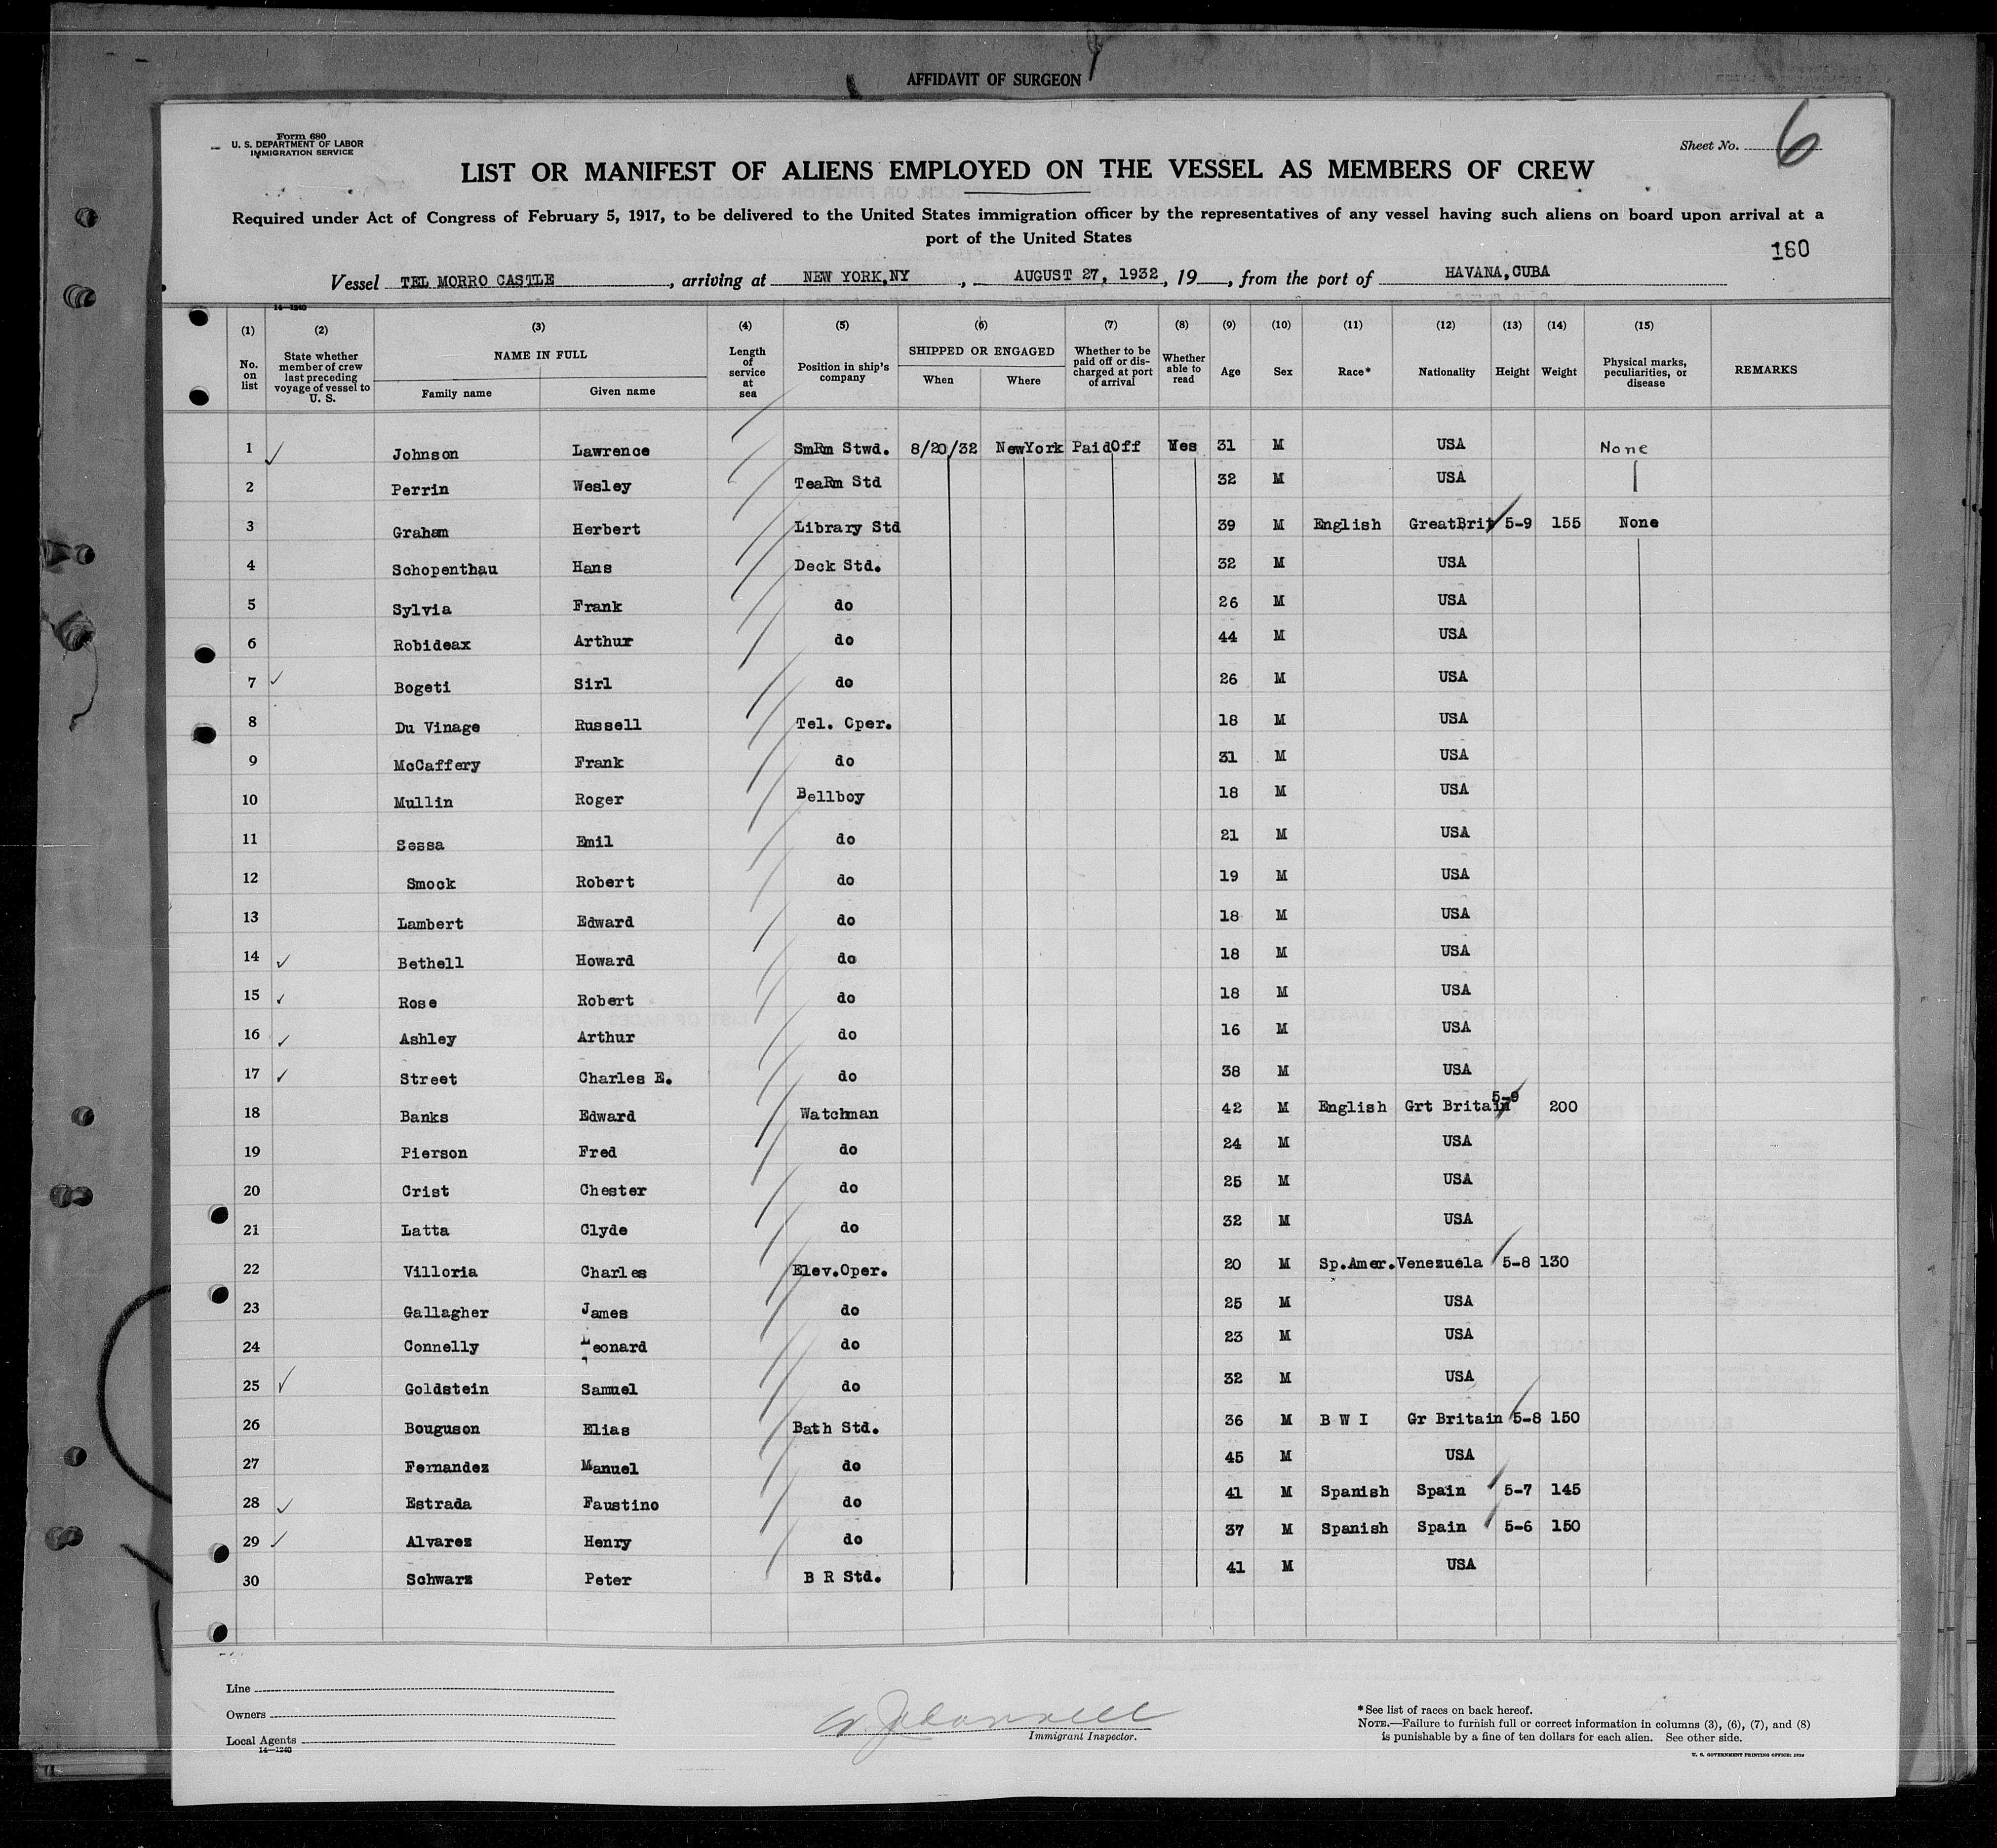 AFFIDAVIT OF SURGEON
Form 680
U. S. DEPARTMENT OF LABOR
IMMIGRATION SERVICE
Sheet No. 6
LIST OR MANIFEST OF ALIENS EMPLOYED ON THE VESSEL AS MEMBERS OF CREW
Required under Act of Congress of February 5, 1917, to be delivered to the United States immigration officer by the representatives of any vessel having such aliens on board upon arrival at a
port of the United States
160
Vessel TEL MORRO CASTLE, arriving at NEW YORK,NY, AUGUST 27, 1932, 19, from the port of HAVANA,CUBA
14—1240
(1) (2) (3) (4) (5) (6) (7) (8) (9) (10) (11) (12) (13) (14) (15)
No. on list State whether member of crew last preceding voyage of vessel to U. S. NAME IN FULL Family name Given name Length of service at sea Position in ship's company SHIPPED OR ENGAGED When Where Whether to be paid off or discharged at port of arrival Whether able to read Age Sex Race* Nationality Height Weight Physical marks, peculiarities, or disease REMARKS
1 ✓ Johnson Lawrence SmRm Stwd. 8/20/32 NewYork PaidOff Yes 31 M USA None
2 Perrin Wesley TeaRm Std 32 M USA
3 Graham Herbert Library Std 39 M English GreatBrit 5-9 155 None
4 Schopenthau Hans Deck Std. 32 M USA
5 Sylvia Frank do 26 M USA
6 Robideax Arthur do 44 M USA
7 ✓ Bogeti Sirl do 26 M USA
8 Du Vinage Russell Tel. Cper. 18 M USA
9 McCaffery Frank do 31 M USA
10 Mullin Roger Bellboy 18 M USA
11 Sessa Emil do 21 M USA
12 Smock Robert do 19 M USA
13 Lambert Edward do 18 M USA
14 ✓ Bethell Howard do 18 M USA
15 ✓ Rose Robert do 18 M USA
16 ✓ Ashley Arthur do 16 M USA
17 ✓ Street Charles E. do 38 M USA
18 Banks Edward Watchman 42 M English Grt Britain 5-9 200
19 Pierson Fred do 24 M USA
20 Crist Chester do 25 M USA
21 Latta Clyde do 32 M USA
22 Villoria Charles Elev.Oper. 20 M Sp.Amer. Venezuela 5-8 130
23 Gallagher James do 25 M USA
24 Connelly Leonard do 23 M USA
25 ✓ Goldstein Samuel do 32 M USA
26 Bouguson Elias Bath Std. 36 M B W I Gr Britain 5-8 150
27 Fernandez Manuel do 45 M USA
28 ✓ Estrada Faustino do 41 M Spanish Spain 5-7 145
29 ✓ Alvarez Henry do 37 M Spanish Spain 5-6 150
30 Schwarz Peter B R Std. 41 M USA
Line
Owners
Local Agents
14—1240
Immigrant Inspector.
*See list of races on back hereof.
NOTE.—Failure to furnish full or correct information in columns (3), (6), (7), and (8)
is punishable by a fine of ten dollars for each alien. See other side.